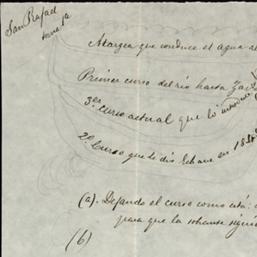 San Rafael
Atargea que conduce el agua
Primer curso del rio hasta
3er curso actual que lo
2º Curso que le dio Esteva en 18
(a). Dejando el curso como está:
para que la
(b)